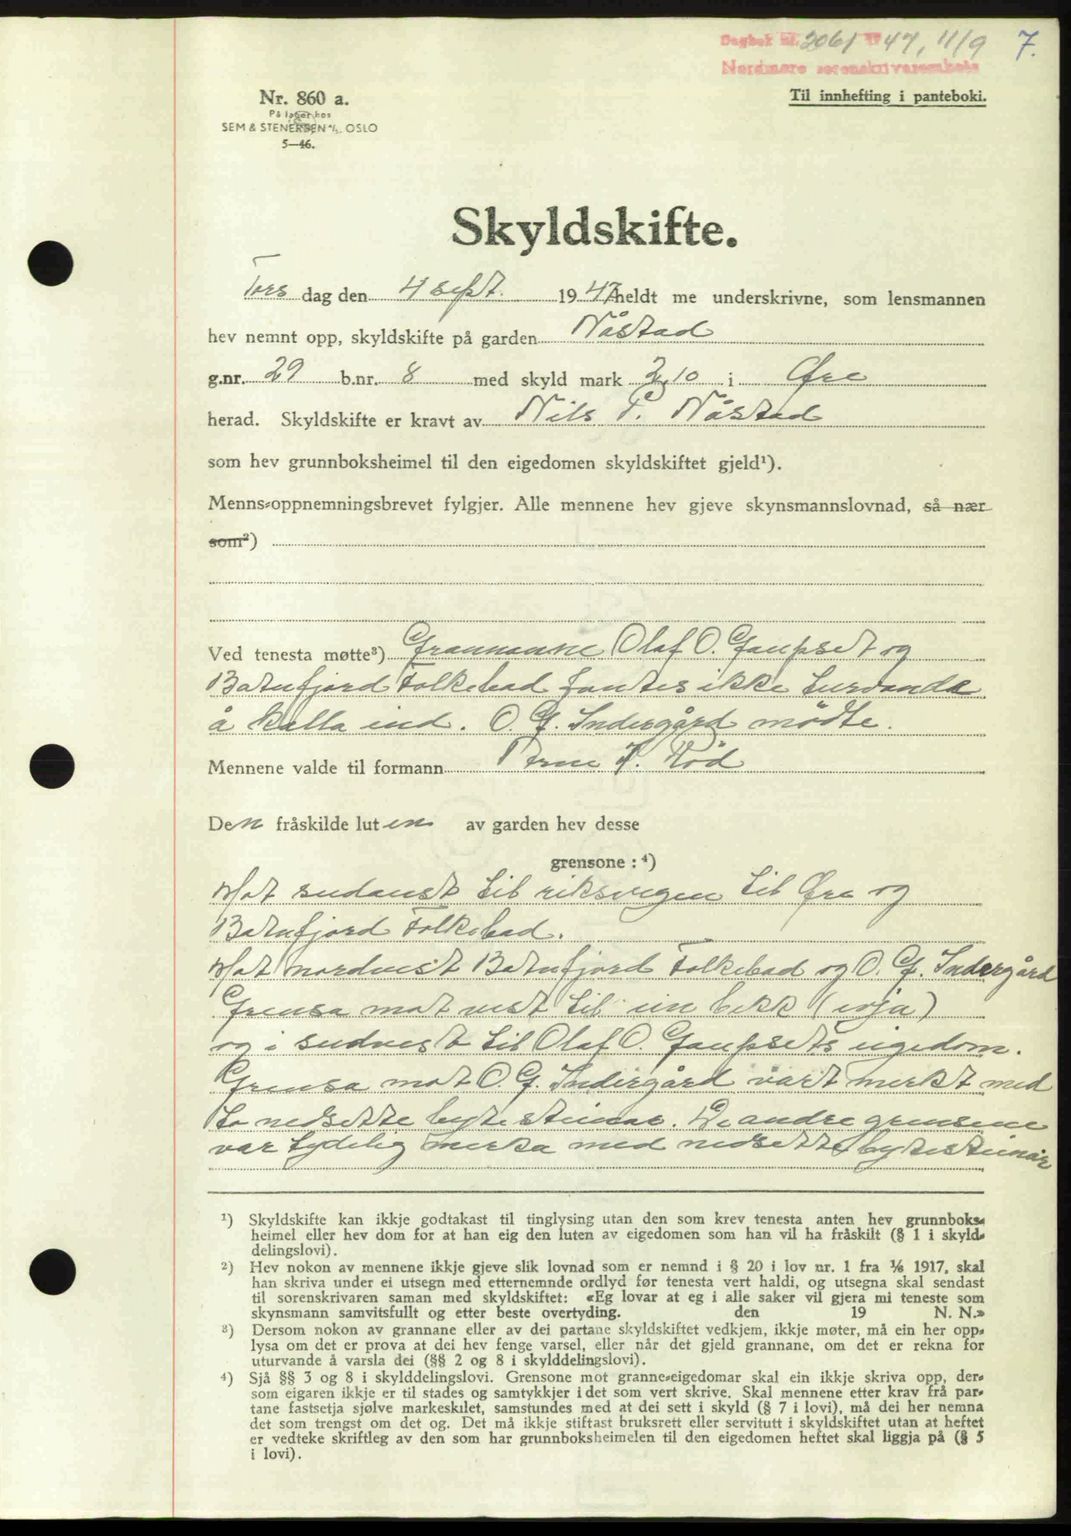 Dagbok nr. 2061 1947, 11/9 7.
Nordmøre sorenskrivarembete
Nr. 860 a.
Til innhefting i panteboki.
På lager hos
SEM & STENERSEN A/S, OSLO
5—46.
Skyldskifte.
Tors dag den 4 sept. 1947 heldt me underskrivne, som lensmannen
hev nemnt opp, skyldskifte på garden Nåstad
g.nr. 29 b.nr. 8 med skyld mark 2,10 i Øre
herad. Skyldskifte er kravt av Nils P. Nåstad
som hev grunnboksheimel til den eigedomen skyldskiftet gjeld¹).
Menns-oppnemningsbrevet fylgjer. Alle mennene hev gjeve skynsmannslovnad, så nær
som²)
Ved tenesta møtte³) Grannane Olaf O. Gaupset og
Batnfjord Folkebad fantes ikke turvande
å kalla ind. O. G. Indergård mödte.
Mennene valde til formann Arne K. Röd
Den fråskilde luten av garden hev desse
grensone : ⁴)
Mot sudaust til riksvegen til Øre og
Batnfjord Folkebad.
Mot nordvest Batnfjord Folkebad og O. G. Indergård
Grensa mot vest til ein bekk (evja)
og i sudvest til Olaf O. Gaupsets eigedom.
Grensa mot O. G. Indergård vart merkt med
to nedsette bytesteinar. De andre grensene
var tydeleg merka med nedsette bytesteinar
¹) Skyldskifte kan ikkje godtakast til tinglysing utan den som krev tenesta anten hev grunnboks-
heimel eller hev dom for at han eig den luten av eigedomen som han vil ha fråskilt (§ 1 i skyld-
delingslovi).
²) Hev nokon av mennene ikkje gjeve slik lovnad som er nemnd i § 20 i lov nr. 1 fra 1/6 1917, skal
han skriva under ei utsegn med etternemnde ordlyd før tenesta vert haldi, og utsegna skal sendast
til sorenskrivaren saman med skyldskiftet: «Eg lovar at eg i alle saker vil gjera mi teneste som
skynsmann samvitsfullt og etter beste overtyding. den 19 N. N.»
³) Dersom nokon av grannane eller av dei partane skyldskiftet vedkjem, ikkje møter, må ein her opp-
lysa om det er prova at dei hev fenge varsel, eller når det gjeld grannane, om det er rekna for
uturvande å varsla dei (§§ 2 og 8 i skylddelingslovi).
⁴) Sjå §§ 3 og 8 i skylddelingslovi. Grensone mot granne-eigedomar skal ein ikkje skriva opp, der-
som eigaren ikkje er til stades og samtykkjer i det som vert skrive. Skal mennene etter krav frå par-
tane fastsetja sjølve markeskilet, samstundes med at dei sett i skyld (§ 7 i lovi), må dei her nemna
det som trengst om det og. Det må ikkje stiftast bruksrett eller servitutt i skyldskiftet utan at heftet
er vedteke skriftleg av den som har grunnboksheimelen til den eigedomen heftet skal liggja på (§ 5
i lovi).